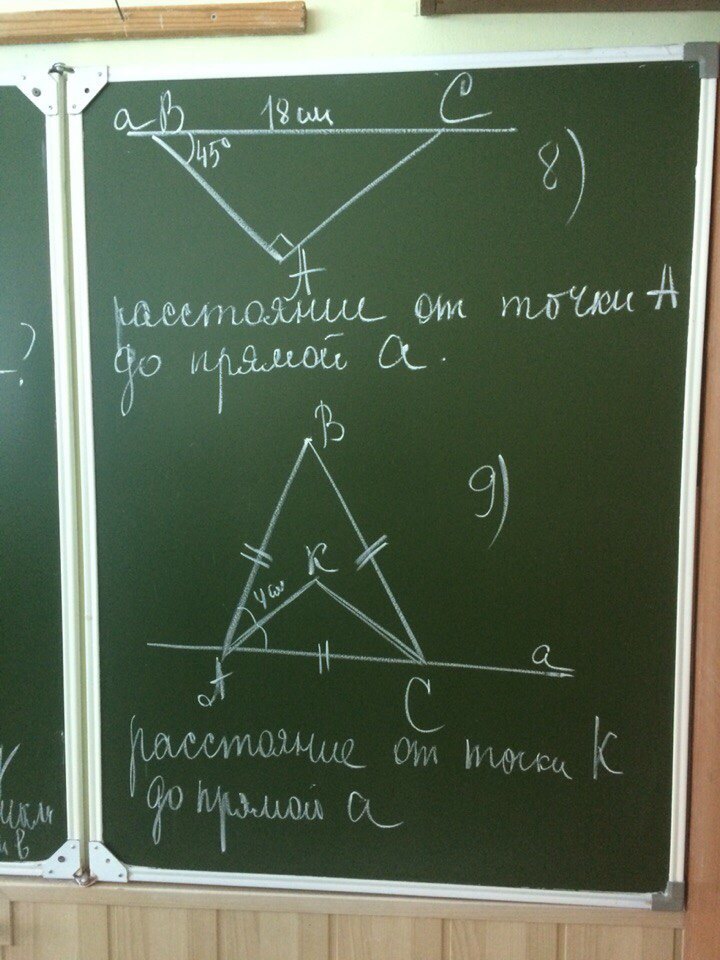 a B 18 см C
45°
8)
A
расстояние от точки A
до прямой a.
B
9)
K
4 см
a
A
C
расстояние от точки K
до прямой a
?